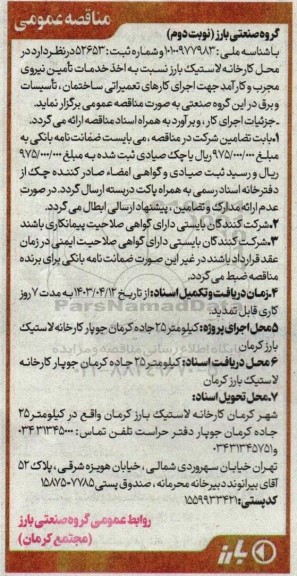 مناقصه عمومی
گروه صنعتی بارز (نوبت دوم)
با شناسه ملی: ۱۰۱۰۰۹۷۷۹۸۳ و شماره ثبت: ۵۲۶۵۳ در نظر دارد در
محل کارخانه لاستیک بارز نسبت به اخذ خدمات تأمین نیروی
مجرب و کارآمد جهت اجرای کارهای تعمیراتی ساختمان، تأسیسات
و برق در این گروه صنعتی به صورت مناقصه عمومی برگزار نماید.
-جزئیات اجرای کار، و برآورد به همراه اسناد مناقصه ارائه می گردد.
۱.بابت تضامین شرکت در مناقصه، می بایست ضمانت نامه بانکی به
مبلغ ۹۷۵/۰۰۰/۰۰۰ ریال یا چک صیادی ثبت شده به مبلغ ۹۷۵/۰۰۰/۰۰۰
ریال و رسید ثبت صیادی و گواهی امضاء صادر کننده چک از
دفترخانه اسناد رسمی به همراه پاکت دربسته ارسال گردد. در صورت
عدم ارائه مدارک و تضامین، پیشنهاد ارسالی ابطال می گردد.
۲.شرکت کنندگان بایستی دارای گواهی صلاحیت پیمانکاری باشند
۳.شرکت کنندگان بایستی دارای گواهی صلاحیت ایمنی در زمان
عقد قرارداد باشند در غیر این صورت ضمانت نامه بانکی برای برنده
مناقصه ضبط می گردد.
۴.زمان دریافت و تکمیل اسناد: از تاریخ ۱۴۰۳/۰۴/۱۲ به مدت ۷ روز
کاری قابل تمدید.
۵.محل اجرای پروژه: کیلومتر ۲۵ جاده کرمان جوپار کارخانه لاستیک
بارز کرمان
۶.محل دریافت اسناد: کیلومتر ۲۵ جاده کرمان جوپار کارخانه
لاستیک بارز کرمان
۷.محل تحویل اسناد:
شهر کرمان کارخانه لاستیک بارز کرمان واقع در کیلومتر ۲۵
جاده کرمان جوپار دفتر حراست تلفن تماس: ۰۳۴۳۱۳۴۵۰۰۰
و ۰۳۴۳۱۳۴۵۷۵۱
تهران خیابان سهروردی شمالی، خیابان هویزه شرقی، پلاک ۵۲
آقای بیرانوند دبیرخانه محرمانه، صندوق پستی ۷۷۸۵-۱۵۸۷۵
کدپستی: ۱۵۵۹۹۳۳۴۲۱
روابط عمومی گروه صنعتی بارز
(مجتمع کرمان)
بارز